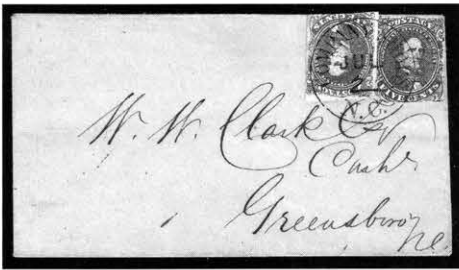 POSTAGE
JUL
2
N.C.
W. W. Clark Esq
Cashr
Greensboro
N.C.